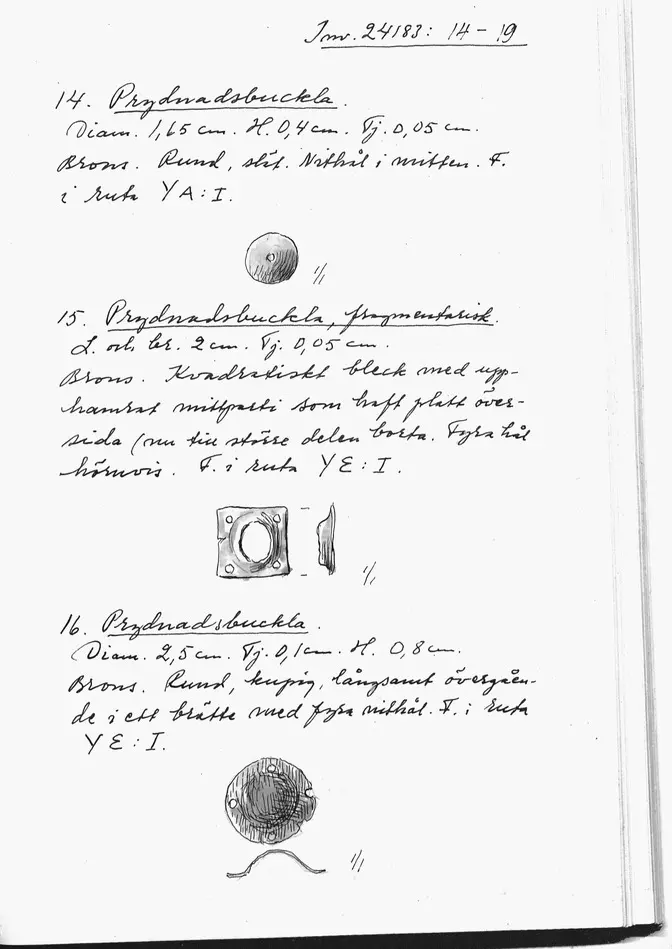 Inv. 24183: 14-19
14. Prydnadsbuckla.
Diam. 1,65 cm. H. 0,4 cm. Tj. 0,05 cm.
Brons. Rund, slät. Nithål i mitten. F.
i ruta YA:I.
1/1
15. Prydnadsbuckla, fragmentarisk.
L. och br. 2 cm. Tj. 0,05 cm.
Brons. Kvadratiskt bleck med upp-
hamrat mittparti som haft platt över-
sida (nu till större delen borta. Fyra hål
hörnvis. F. i ruta YE:I.
1/1
16. Prydnadsbuckla.
Diam. 2,5 cm. Tj. 0,1 cm. H. 0,8 cm.
Brons. Rund, kupig, långsamt övergåen-
de i ett brätte med fyra nithål. F. i ruta
YE:I.
1/1